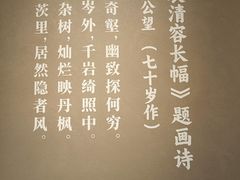 清容长幅》题画诗
公望（七十岁作）
奇壑，幽致探何穷。
岑外，千岩绮照中。
杂树，灿烂映丹枫。
茨里，居然隐者风。